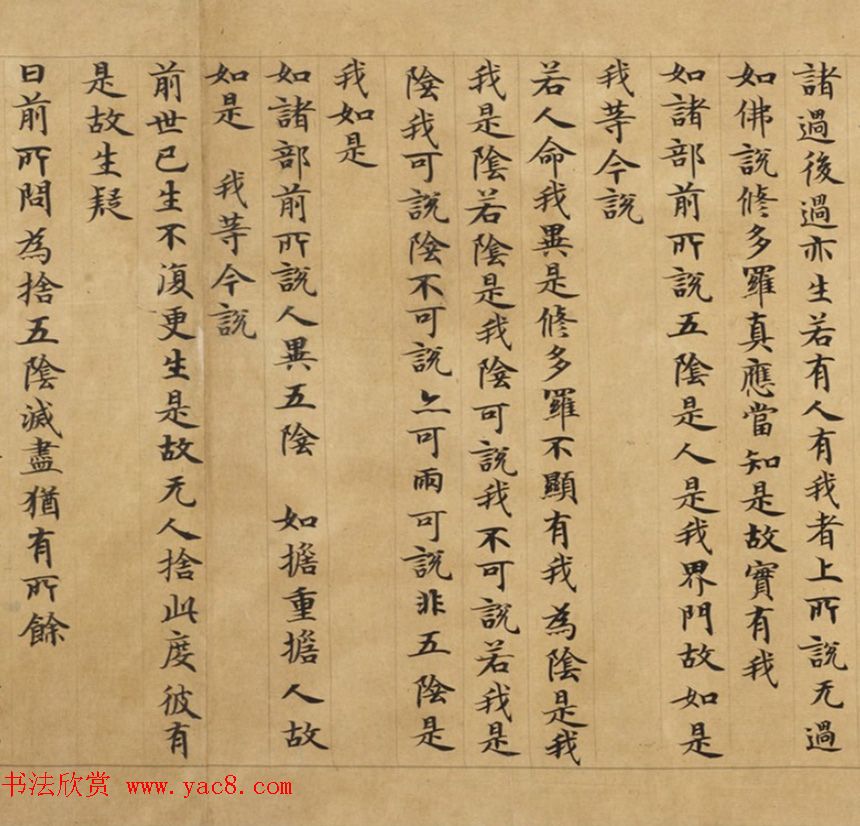 諸過後過亦生若有人有我者上所說无過
如佛說修多羅真應當知是故實有我
如諸部前所說五陰是人是我界門故如是
我等今說
若人命我異是修多羅不顯有我為陰是我
我是陰若陰是我陰可說我不可說若我是
陰我可說陰不可說亦可兩可說非五陰是
我如是
如諸部前所說人異五陰　如擔重擔人故
如是　我等今說
前世已生不復更生是故无人捨此度彼有
是故生疑
日前所問為捨五陰滅盡猶有所餘
书法欣赏 www.yac8.com